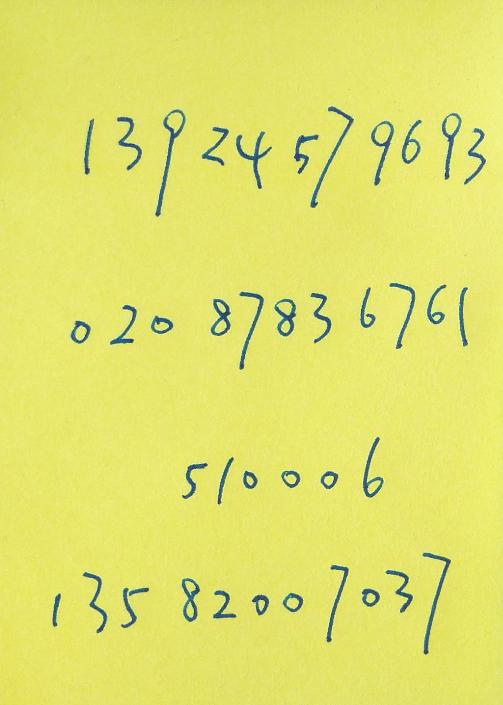 13924579693
020 87836761
510006
13582007037